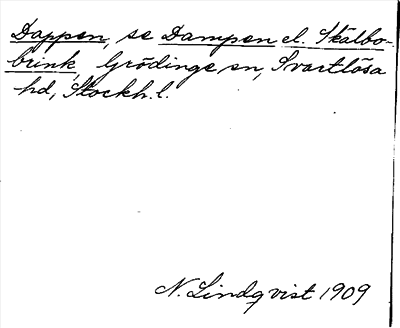 Dappen, se Dampen el. Skälbo-
brink, Grödinge sn, Svartlösa
hd, Stockh. l.
N. Lindqvist 1909